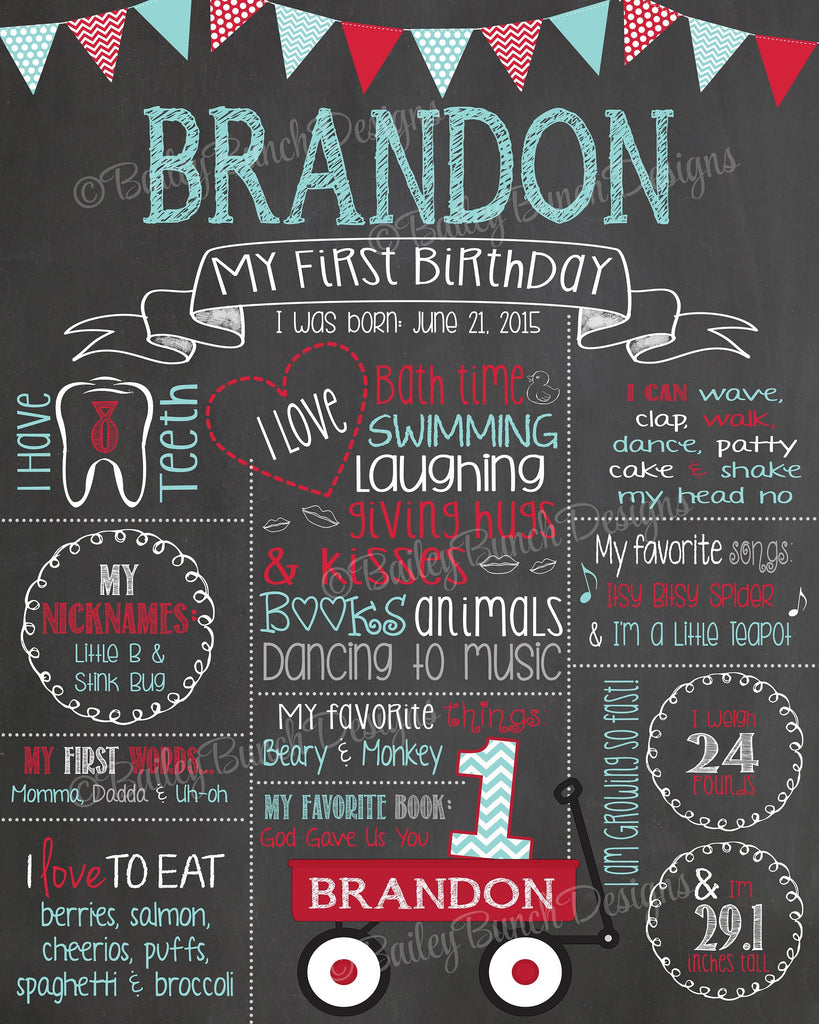 BRANDON
MY FIRST BIRTHDAY
I WAS BORN: JUNE 21, 2015
I Have
8
Teeth
I LOVE
Bath time
SWIMMING
Laughing
giving hugs
& kisses
BOOKS animals
DANCING TO MUSIC
I CAN wave,
clap, walk,
dance, patty
cake & shake
my head no
MY
NICKNAMES:
Little B &
Stink Bug
My favorite songs:
Itsy Bitsy Spider
& I'm a Little Teapot
MY FIRST WORDS...
Momma, Dadda & Uh-oh
MY FAVORITE things:
Beary & Monkey
MY FAVORITE BOOK:
God Gave Us You
1
BRANDON
I love TO EAT
berries, salmon,
cheerios, puffs,
spaghetti & broccoli
I AM GROWING SO FAST!
I WEIGH
24
POUNDS
& I'm
29.1
inches tall
©BaileyBunchDesigns
©BaileyBunchDesigns
©BaileyBunchDesigns
©BaileyBunchDesigns
©BaileyBunchDesigns